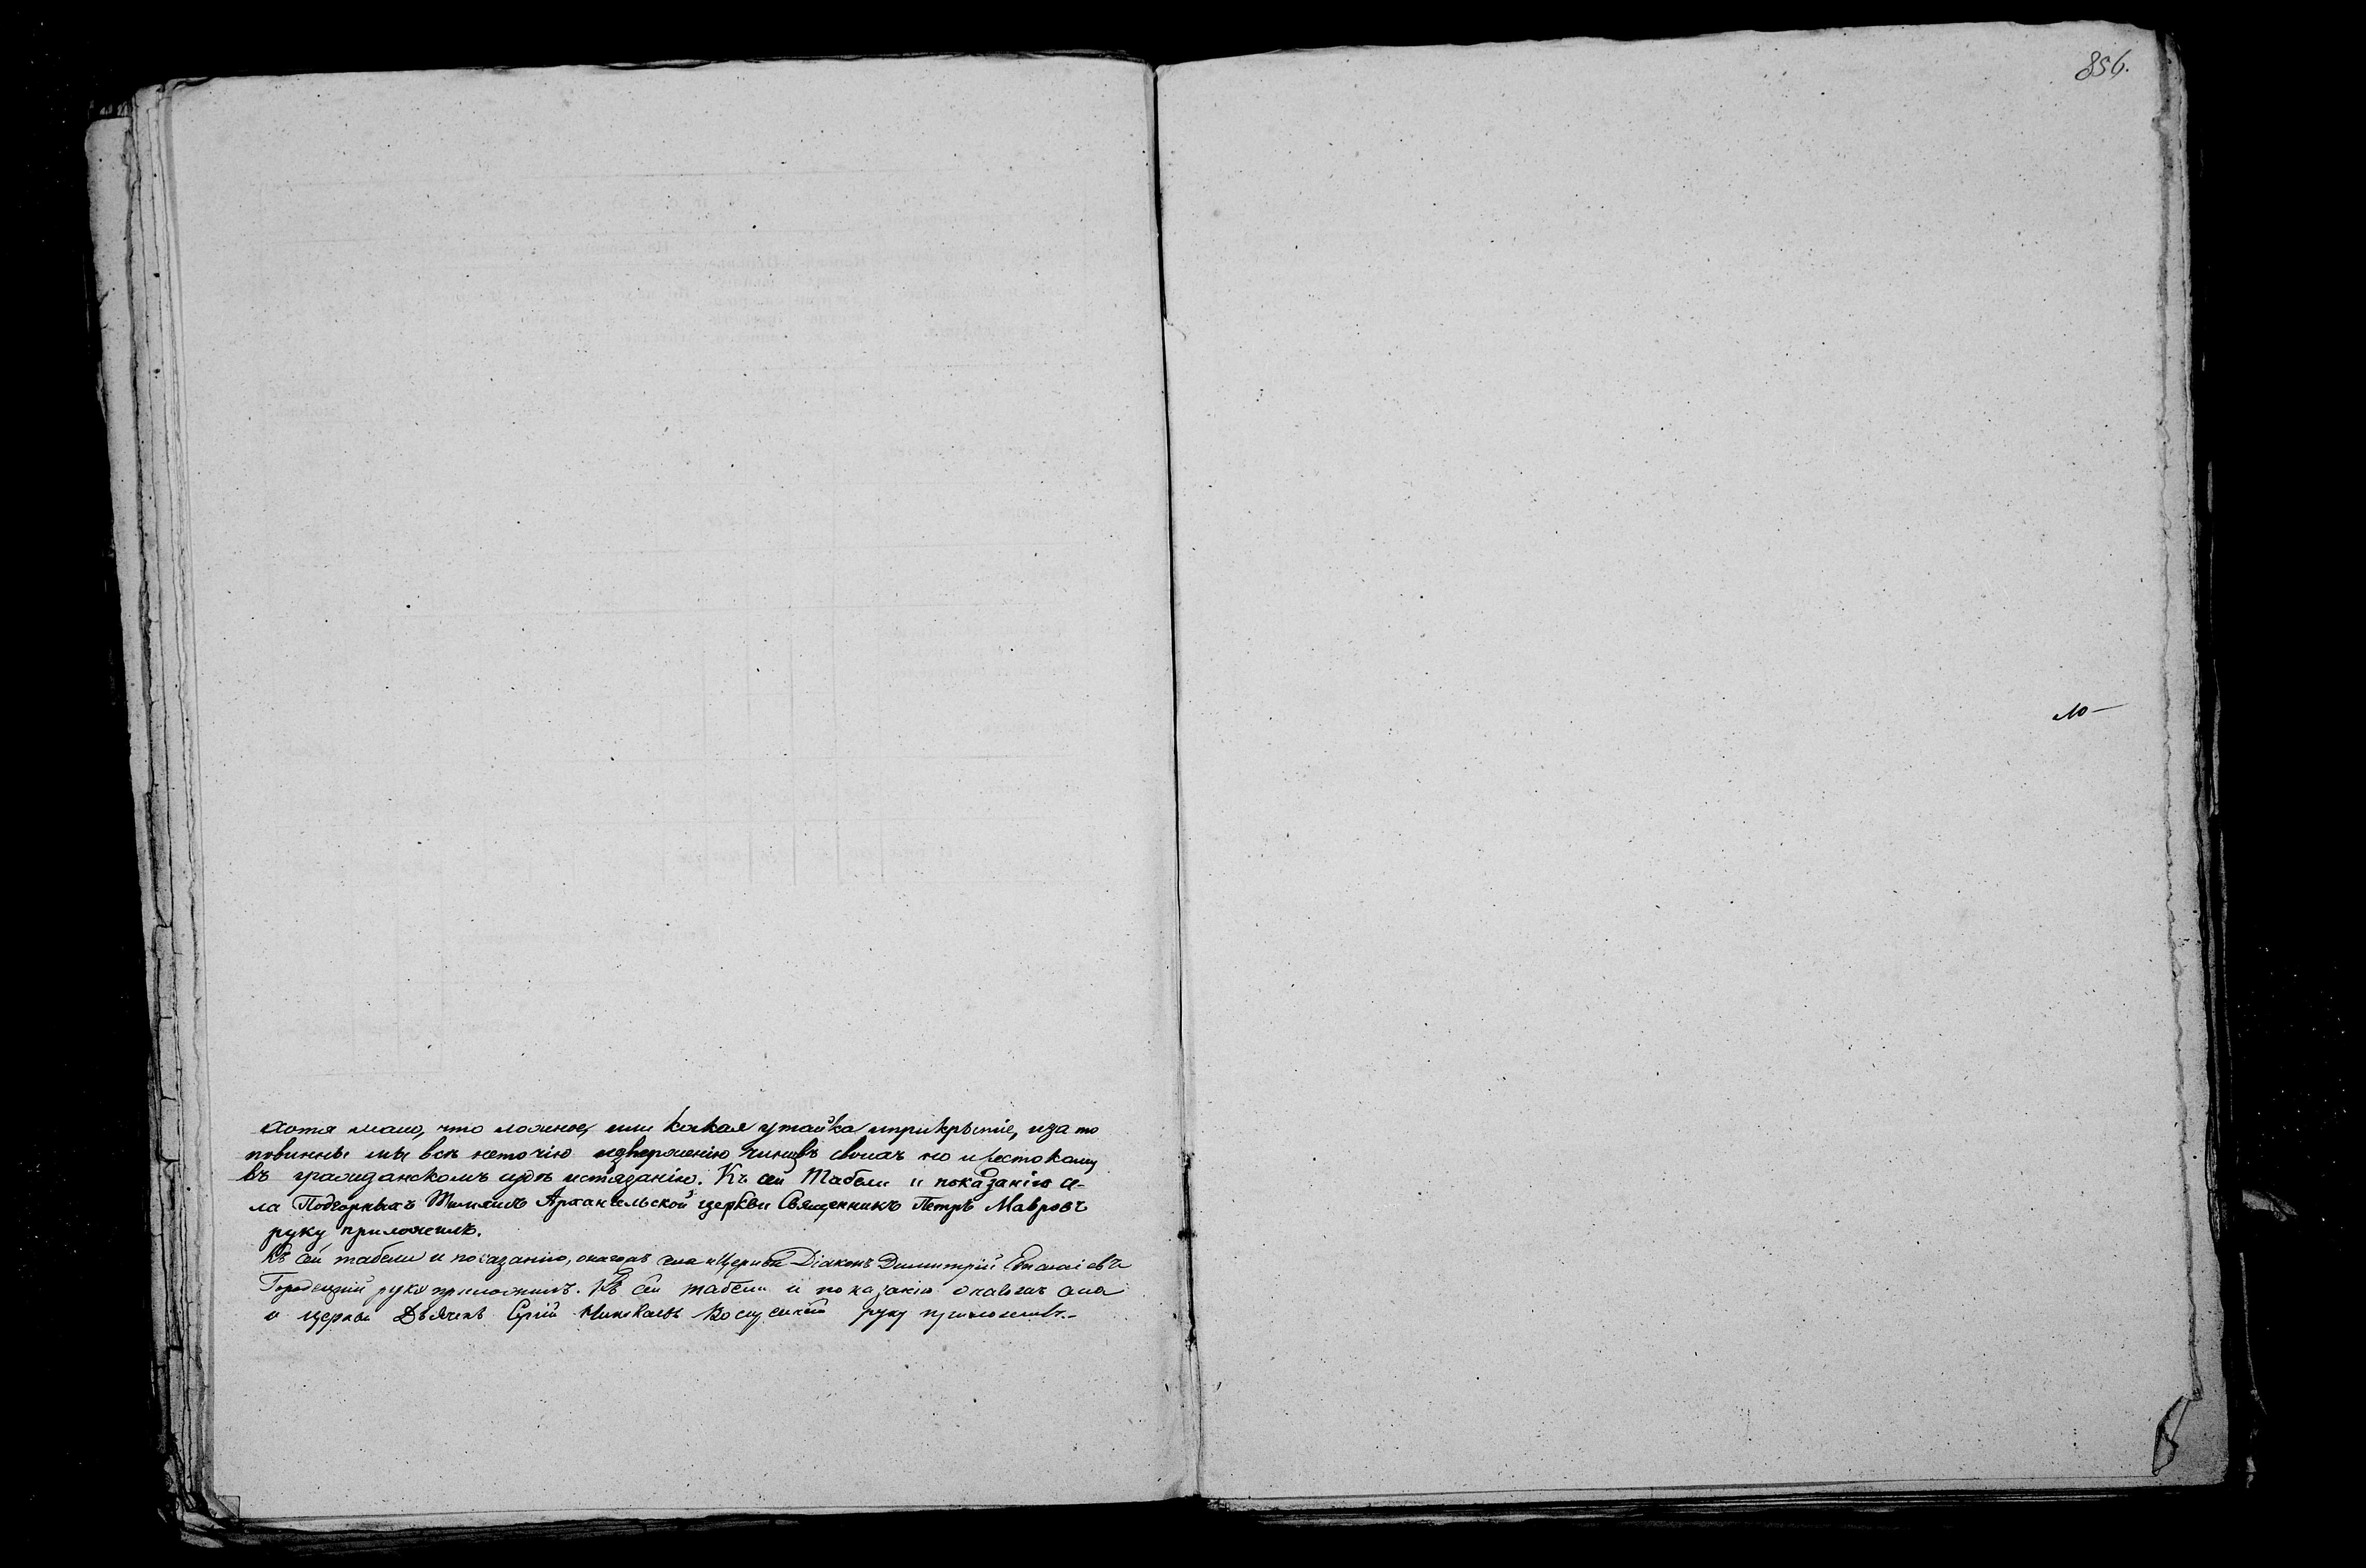 хотя мало, что ложное, или какая утайка иприкрытіе, иза то
повинны мы всѣ неточію изверженію чиновъ своихъ но и жестокому
въ гражданскомъ судѣ истязанію. Къ сей Табели и показанію се-
ла Подгорныхъ Архангельской церкви Священникъ Петръ Мавровъ
руку приложилъ.
Къ сей табели и показанію, онагожъ села и Церкви Діаконъ Димитрій
Городецкій руку приложилъ. Къ сей табели и показанію онагожъ села
и церкви Дьячекъ Сергій руку приложилъ.-
856.
10-